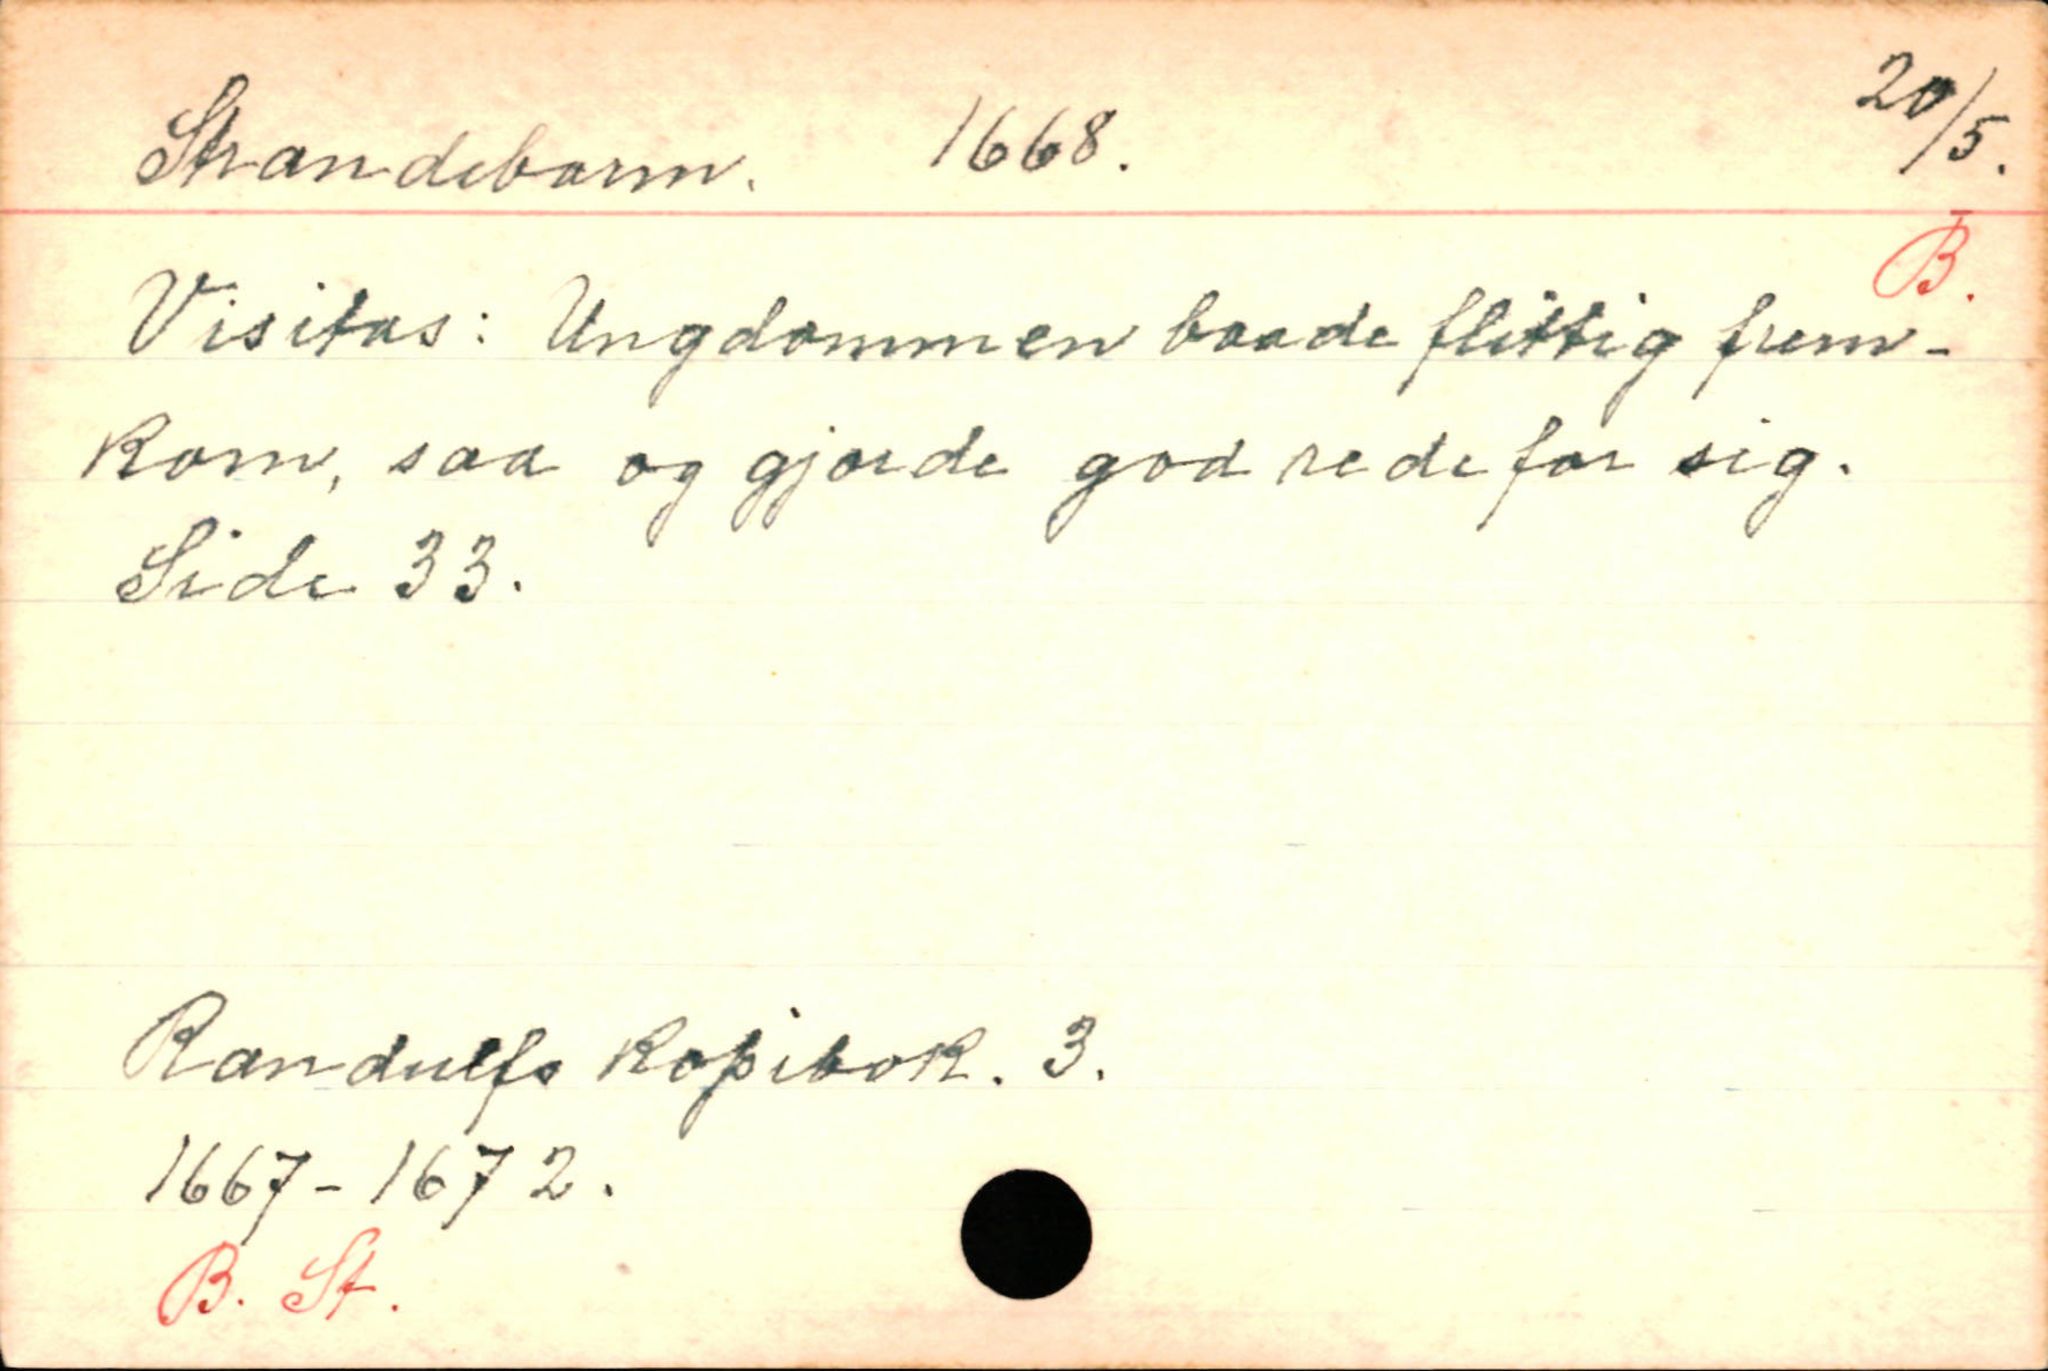 Strandebarm. 1668. 20/5.
B.
Visitas: Ungdommen baade flittig frem-
kom, saa og gjorde god rede for sig.
Side 33.
Randulfs kopibok. 3.
1667-1672.
B. St.